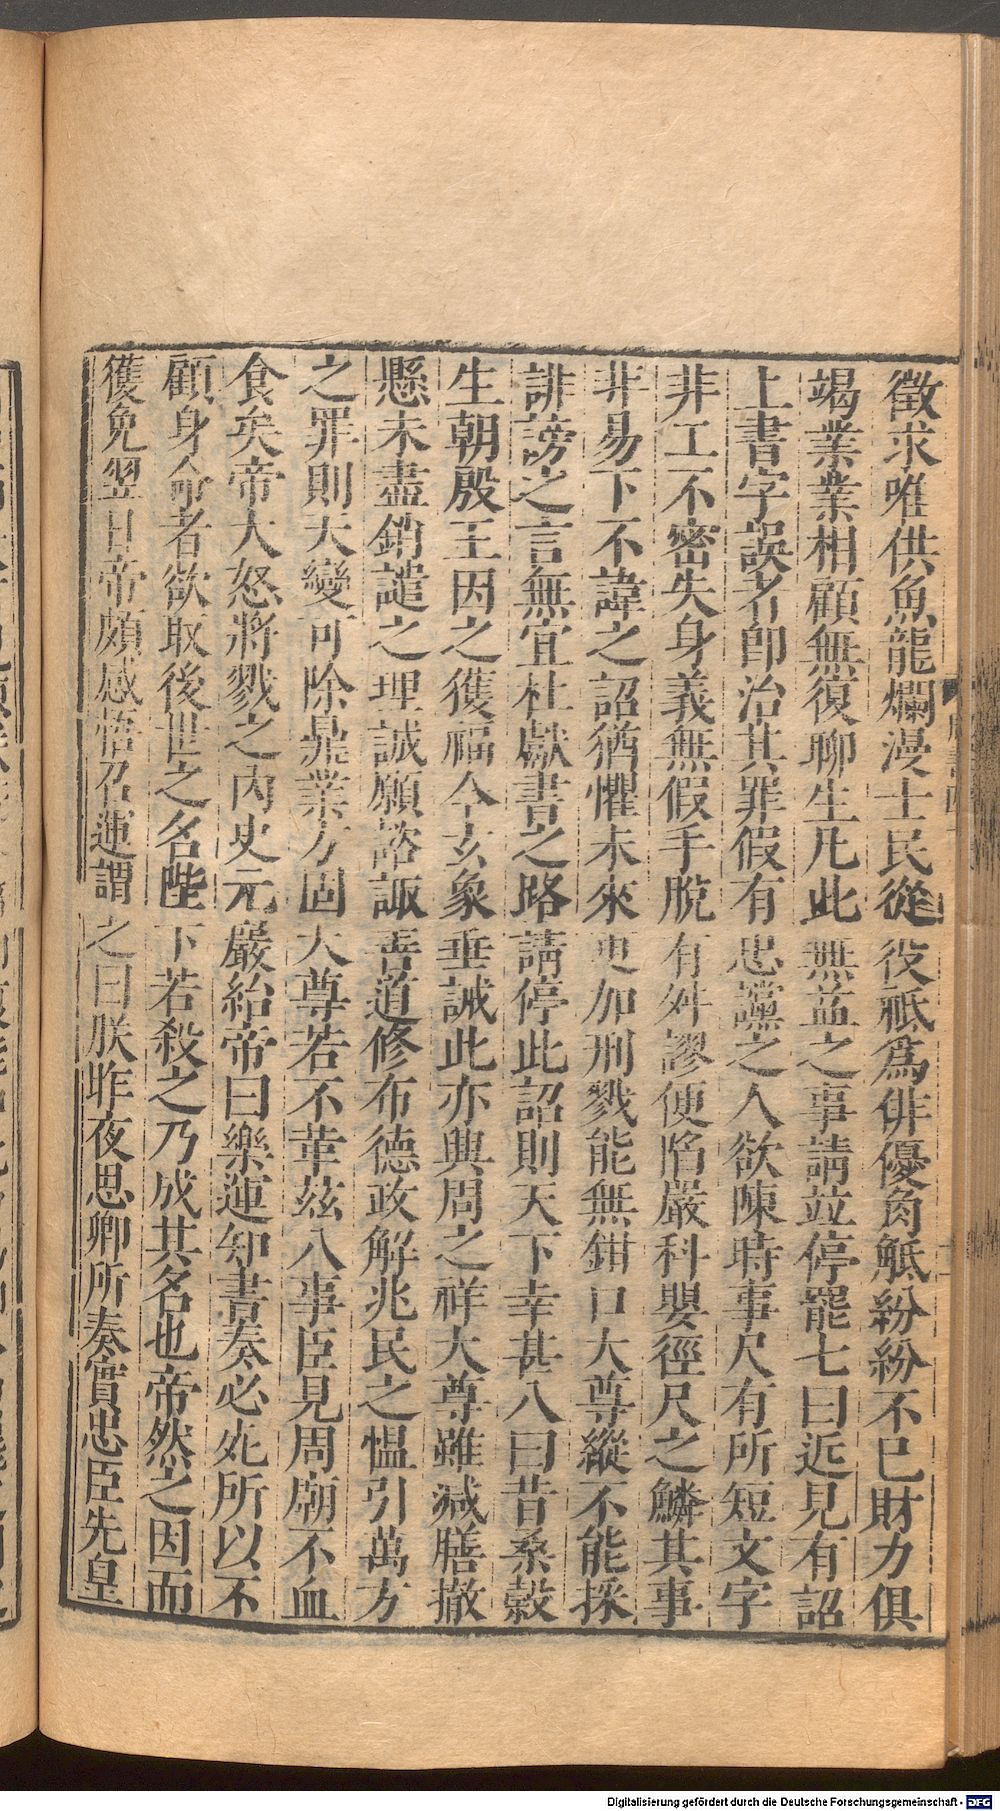 徵求唯供魚龍爛漫士民從役祗爲俳優角觝紛紛不已財力俱
竭業業相顧無復聊生凡此無益之事請竝停罷七曰近見有詔
上書字誤者卽治其罪假有忠讜之人欲陳時事尺有所短文字
非工不密失身義無假手脫有舛謬便陷嚴科嬰徑尺之鱗其事
非易下不諱之詔猶懼未來更加刑戮能無鉗口大尊縱不能採
誹謗之言無宜杜獻書之路請停此詔則天下幸甚八曰昔桑榖
生朝殷王因之獲福今玄象垂誡此亦興周之祥大尊雖減膳撤
懸未盡銷譴之理誠願諮諏善道修布德政解兆民之慍引萬方
之罪則天變可除鼎業方固大尊若不革茲八事臣見周廟不血
食矣帝大怒將戮之內史元巖紿帝曰樂運知書奏必死所以不
顧身命者欲取後世之名陛下若殺之乃成其名也帝然之因而
獲免翌日帝頗感悟召運謂之曰朕昨夜思卿所奏實忠臣先皇
Digitalisierung gefördert durch die Deutsche Forschungsgemeinschaft - DFG